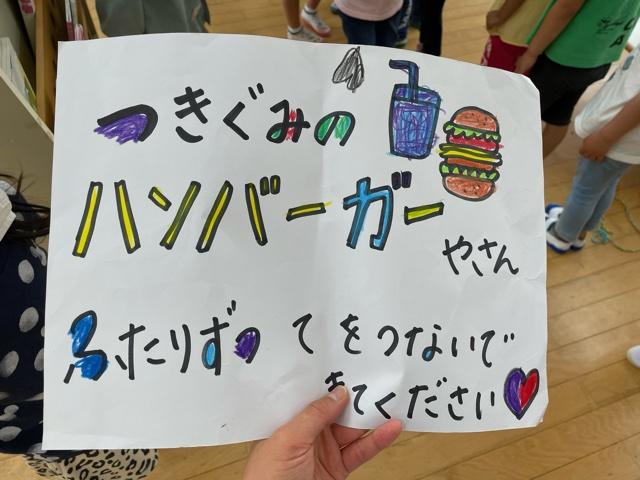 つきぐみの
ハンバーガー
やさん
ふたりずつ てをつないで
きてください